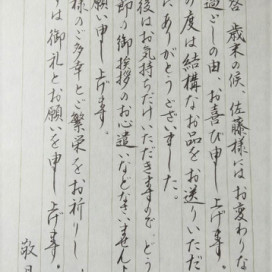 啓 歳末の候、佐藤様にはお変わりな
過ごしの由、お喜び申し上げます。
の度は結構なお品をお送りいただ
にありがとうございました。
後はお気持ちだけいただきますので、どう
節の御挨拶のお心遣いなどなさいませんよ
願い申し上げます。
様のご多幸とご繁栄をお祈りし
は御礼とお願いを申し上げます。
敬具